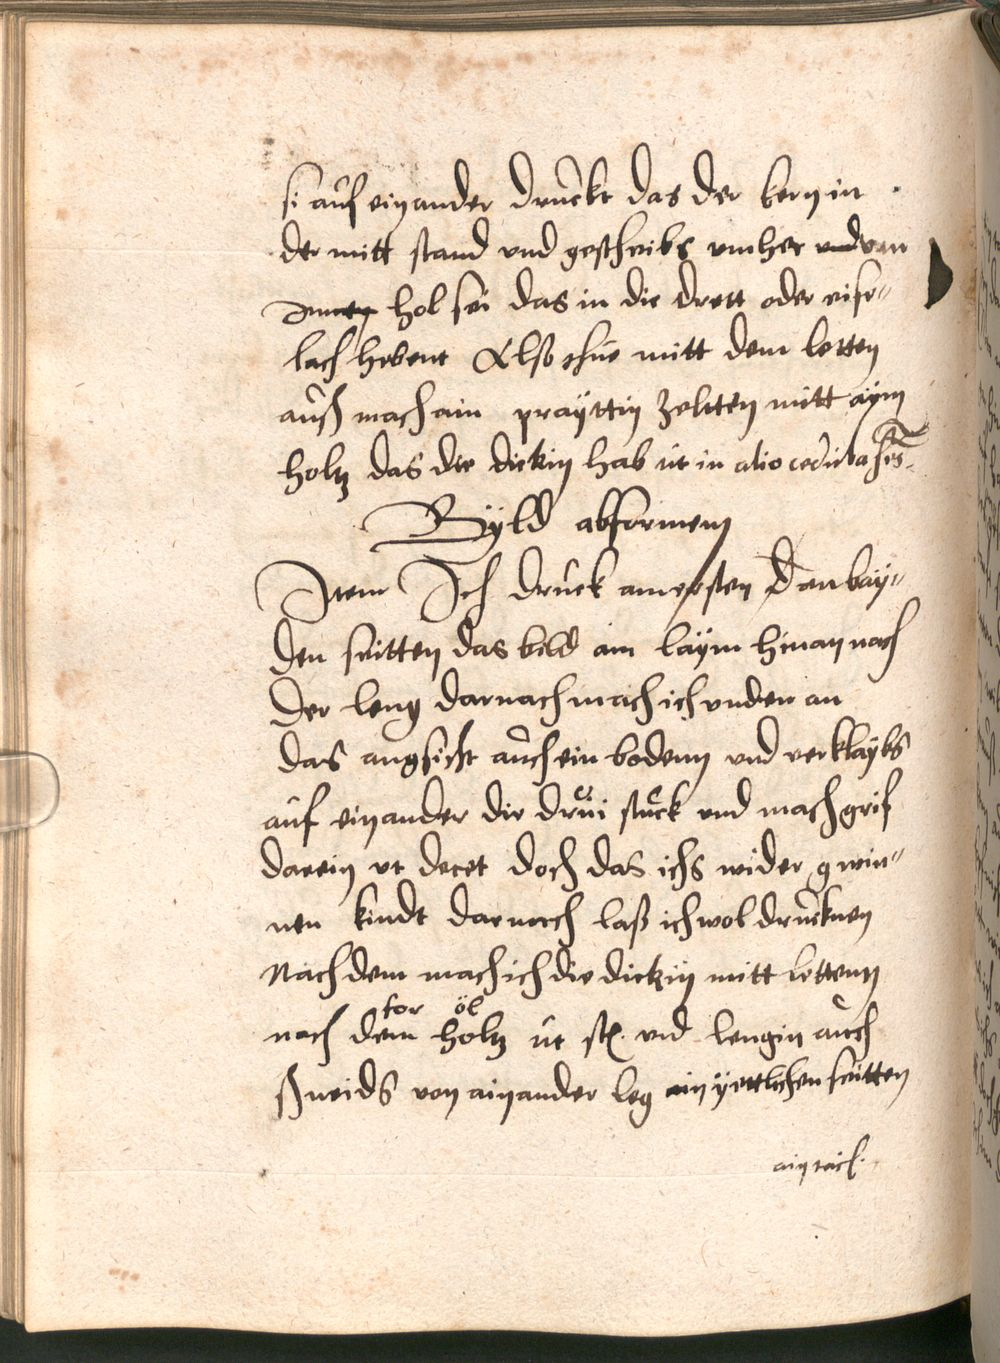 si auf einander druckt das der kern in
der mitt stand vnd gescheibs vmher vnd von
hol sei das in die drett oder eise"
lach hebent Also thue mitt dem letten
auch mach ain prayttin zeltten mitt aym
holtz das die dickin hab ut in alio
Byld abformen
Item Ich druck am ersten D an bay"
den seitten das bild am laym hinan nach
der leng darnach mach ich vnden an
das angsicht auch ein boden vnd verklaybs
auf einander die drui stuck vnd mach grif
darein vt decet doch das ichs wider gwin"
nen kindt darnach laß ich wol drucknen
Nach dem mach ich die dickin mitt letten
tor öl
nach dem holtz ut vnd lengin auch
schneids von ainander leg ain yettlichen seitten
ain